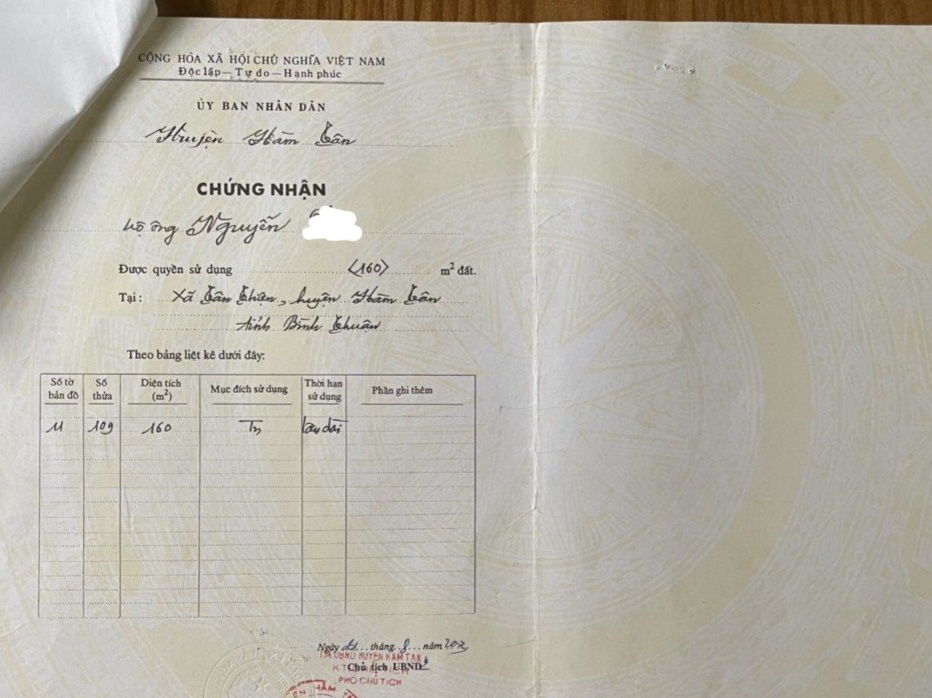 CỘNG HÒA XÃ HỘI CHỦ NGHĨA VIỆT NAM
Độc lập — Tự do — Hạnh phúc
ỦY BAN NHÂN DÂN
Huyện Hàm Tân
CHỨNG NHẬN
hộ ông Nguyễn
Được quyền sử dụng <160> m² đất.
Tại: Xã Tân Thiện, huyện Hàm Tân
tỉnh Bình Thuận
Theo bảng liệt kê dưới đây:
Số tờ bản đồ Số thửa Diện tích (m²) Mục đích sử dụng Thời hạn sử dụng Phần ghi thêm
11 109 160 lâu dài
Ngày tháng 8 năm
TM. UBND HUYỆN HÀM TÂN
KT Chủ tịch UBND
PHÓ CHỦ TỊCH